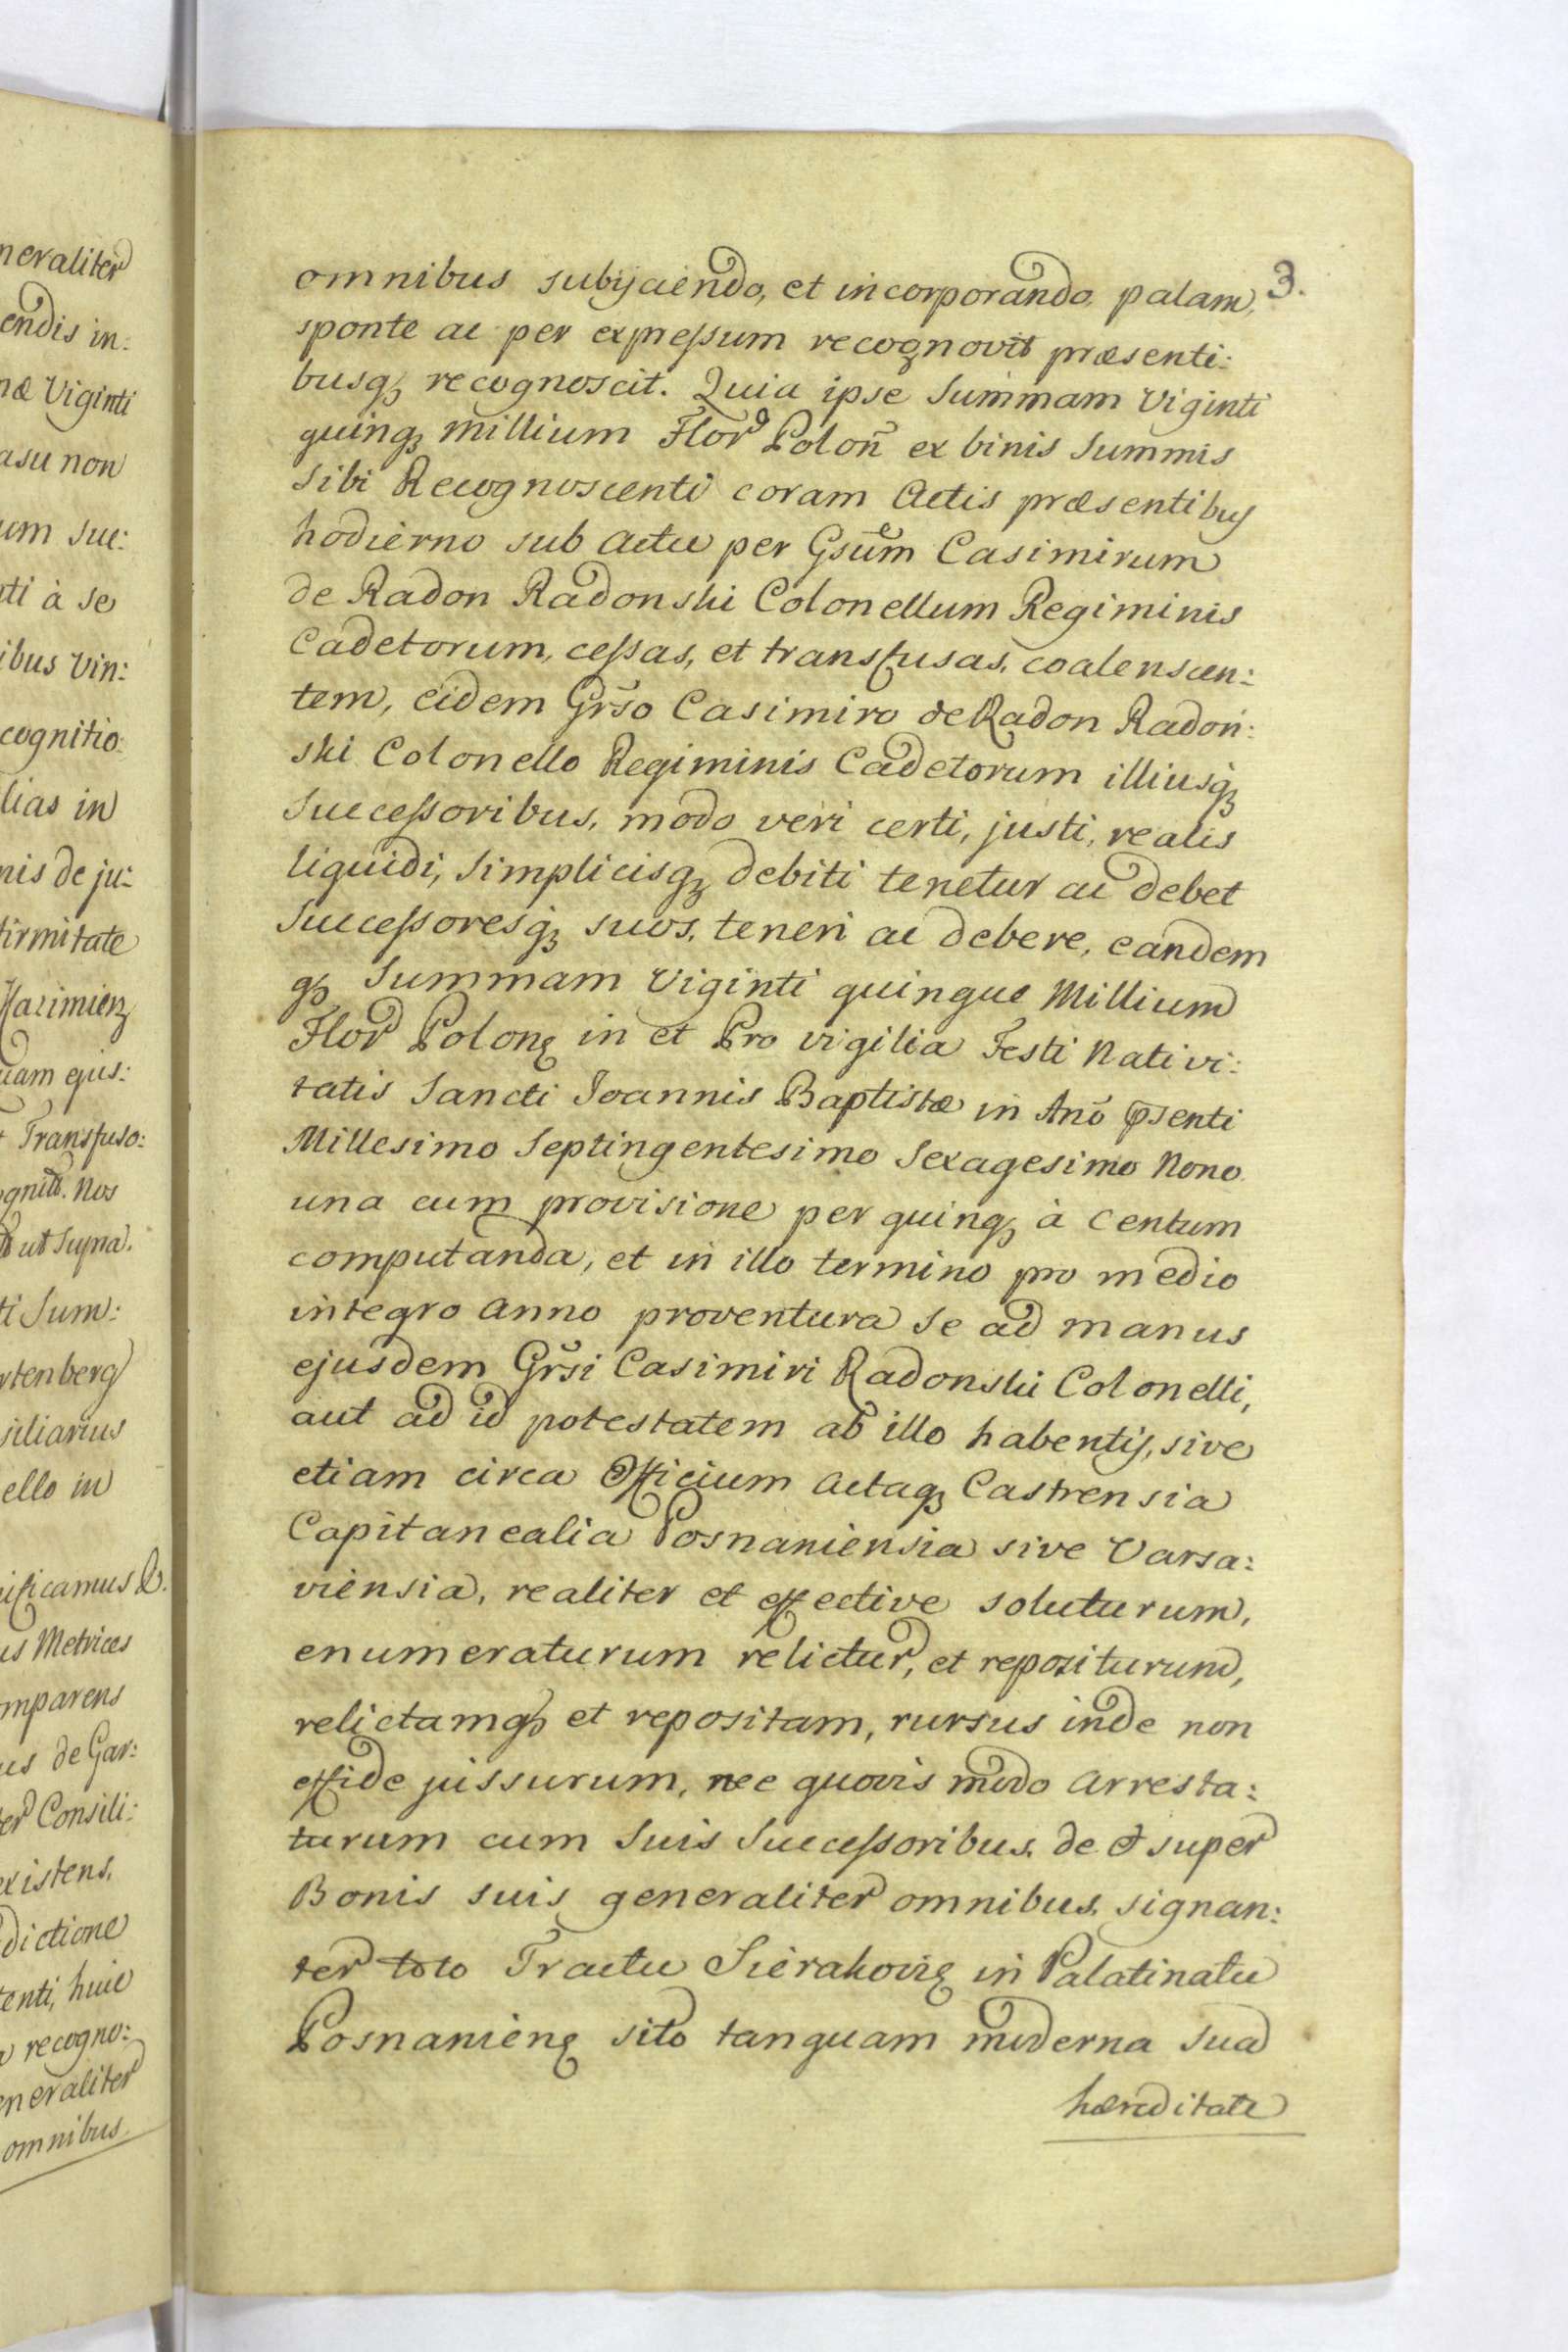 neraliter
endis in:
næ Viginti
asu non
um suc:
ti à se
ibus Vin:
cognitio:
lias in
nis de ju:
firmitate
Kazimierz
uam ejus:
t Transfuso:
ognitũ. Nos
ut supra.
ti Sum:
rtenberg
siliarius
ello in
ificamus &.
us Metrices
mparens
us de Gar:
er Consili:
existens,
dictione
tenti, huic
recogno:
eneraliter
omnibus
3.
omnibus subijciendo, et incorporando, palam,
sponte ac per expressum recognovit præsenti:
busq3 recognoscit. Quia ipse Summam Viginti
quinq3 millium Flor Polon̄ ex binis Summis
Sibi Recognoscenti coram Actis præsentibus
hodierno sub actu per Gsũm Casimirum
de Radon Radonski Colonellum Regiminis
Cadetorum, cessas, et transfusas, coalenscen:
tem, eidem Gr̃so Casimiro de Radon Radoń:
ski Colonello Regiminis Cadetorum illiusq3
Successoribus, modo veri certi, justi, realis
liquidi, Simplicisq3 debiti tenetur ac debet
Successoresq3 suos, teneri ac debere, eandem
q3 Summam Viginti quinque Millium
Flor Polonę in et Pro vigilia Festi Nativi:
tatis Sancti Joannis Baptistæ in Anō p̄senti
Millesimo Septingentesimo Sexagesimo Nono
una cum provisione per quinq3 à Centum
computanda, et in illo termino pro medio
integro anno proventura Se ad manus
ejusdem Gr̃si Casimiri Radonski Colonelli,
aut ad id potestatem ab illo habentis, sive
etiam circa Officium Actaq3 Castrensia
Capitanealia Posnaniensia sive Varsa:
viensia, realiter et effective soluturum,
enumeraturum relictur, et repositurum,
relictamq3 et repositam, rursus inde non
effide jussurum, nec quovis modo arresta:
turum cum Suis Successoribus. de et super
Bonis suis generaliter omnibus. signan:
ter toto Tractu Sierakovię in Palatinatu
Posnanienę sito tanquam moderna sua
hæreditate